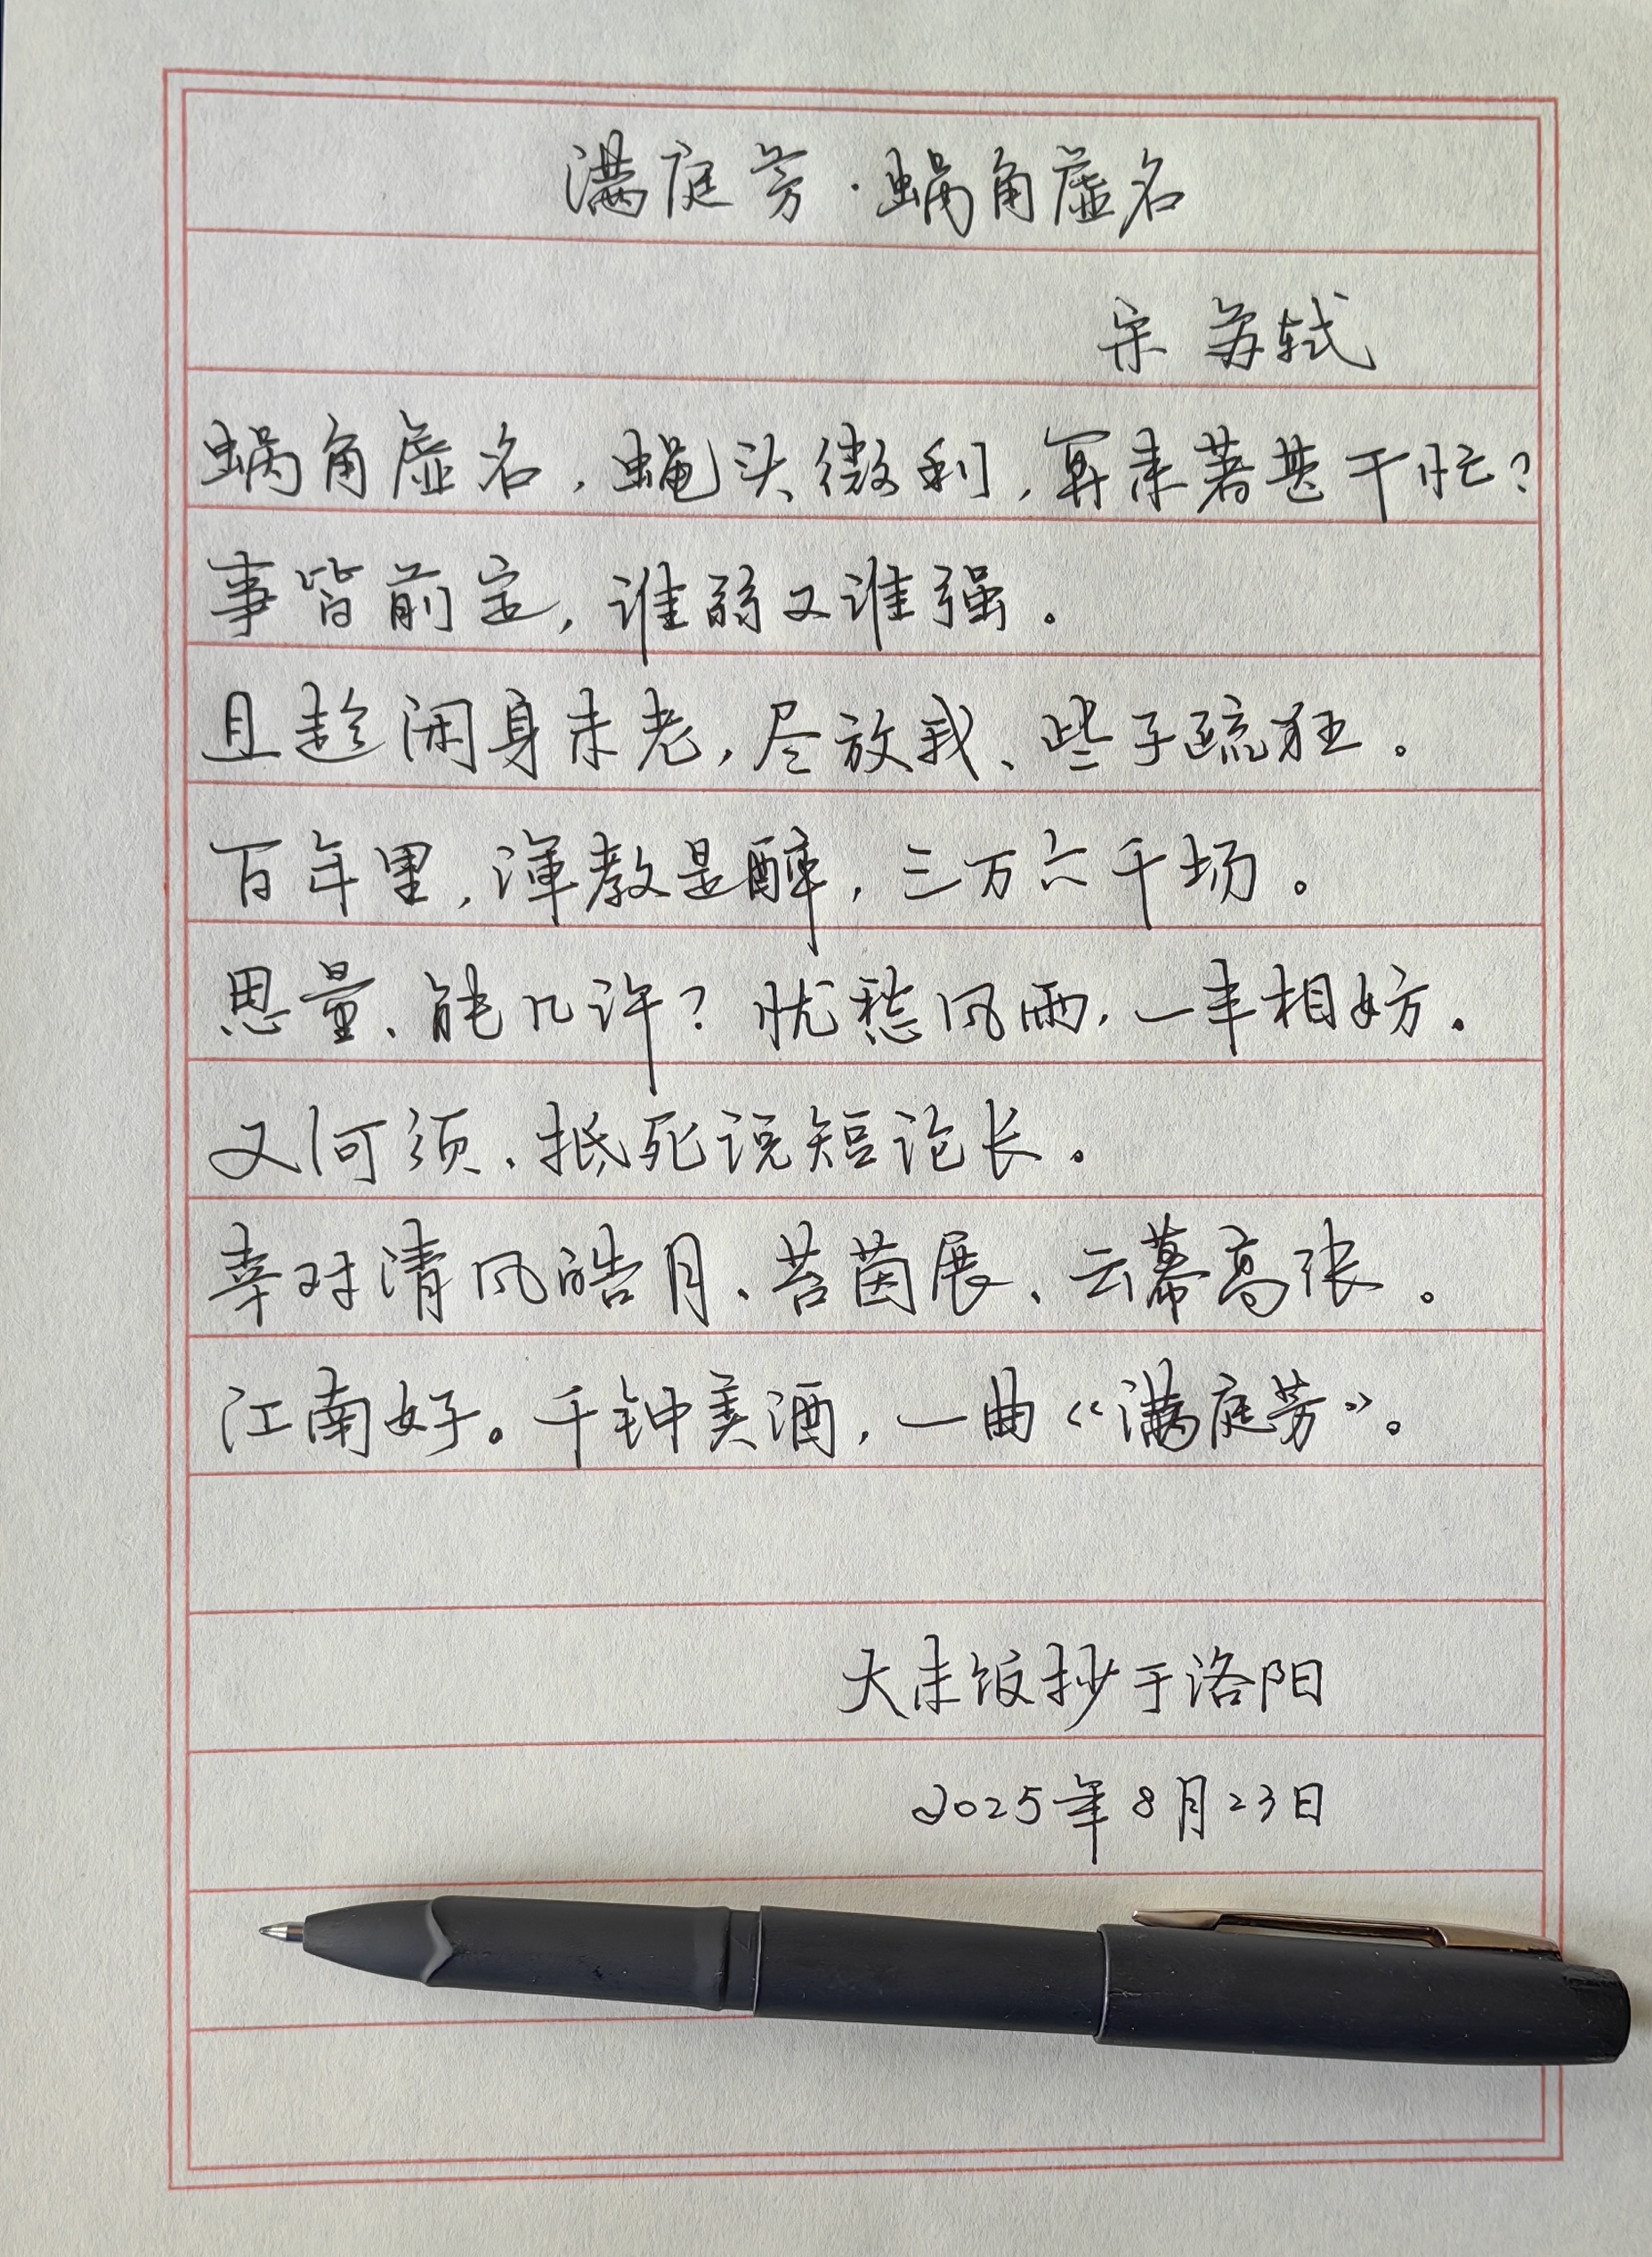 满庭芳·蜗角虚名
宋 苏轼
蜗角虚名，蝇头微利，算来著甚干忙？
事皆前定，谁弱又谁强。
且趁闲身未老，尽放我、些子疏狂。
百年里，浑教是醉，三万六千场。
思量、能几许？忧愁风雨，一半相妨。
又何须、抵死说短论长。
幸对清风皓月、苔茵展、云幕高张。
江南好。千钟美酒，一曲《满庭芳》。
大米饭抄于洛阳
2025年8月23日